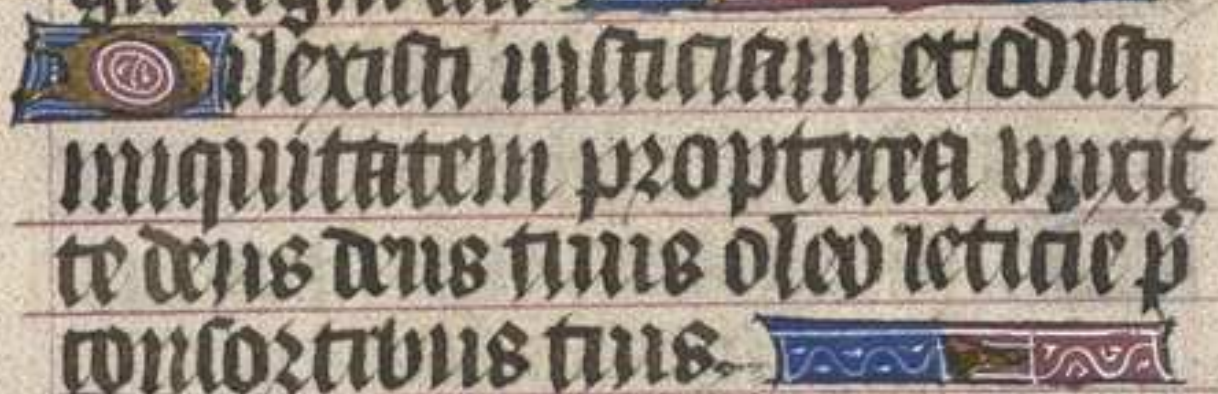 Dilexisti iusticiam et odisti
iniquitatem propterea unxit
te deus deus tuus oleo leticie p̄
consortibus tuis.